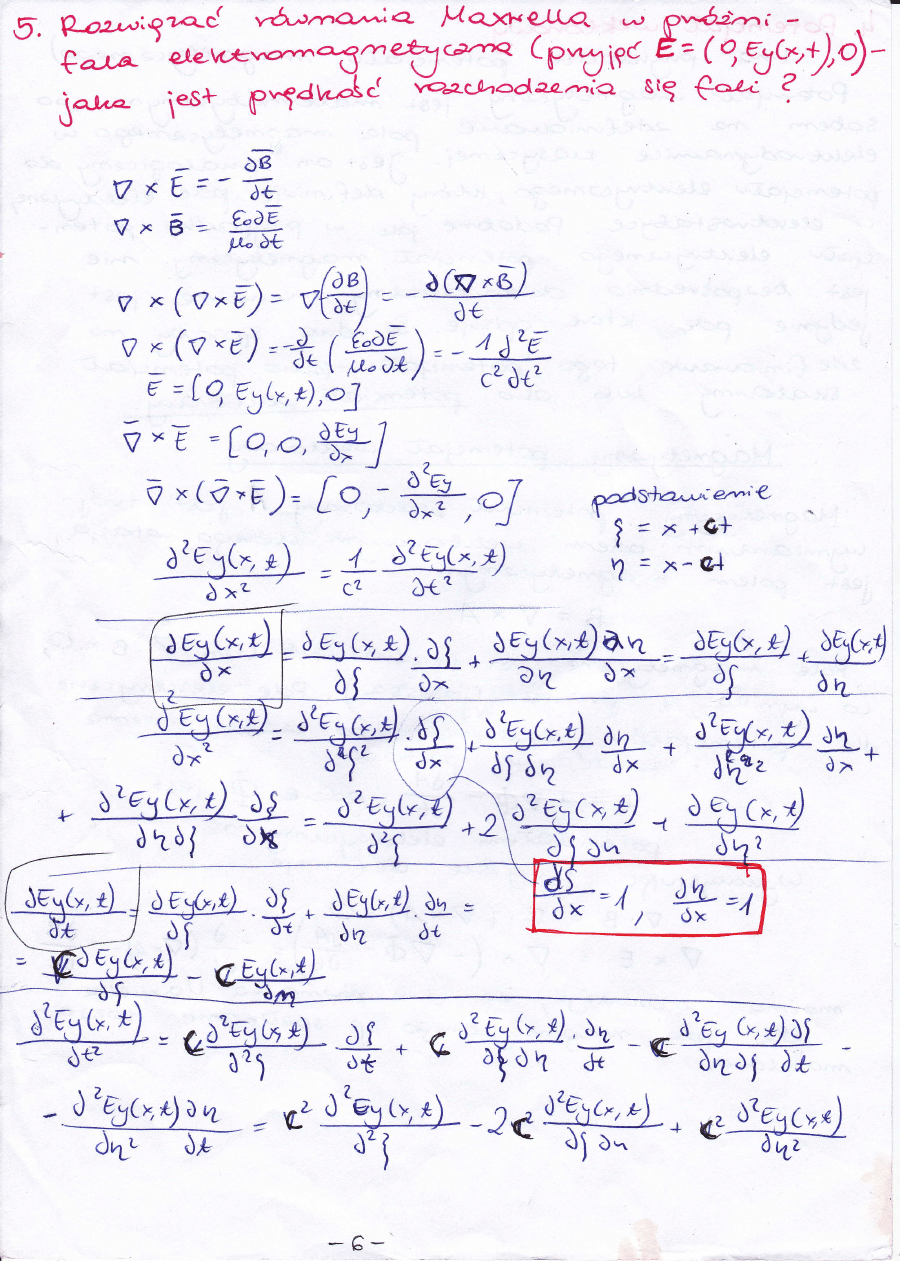 5. Rozwiązać równania Maxwella w próżni -
fala elektromagnetyczna (przyjąć E = (0, Ey(x,t), 0) -
jaka jest prędkość rozchodzenia się fali?
∇ × E̅ = - ∂B̅/∂t
∇ × B̅ = ε₀∂E̅/μ₀∂t
∇ × (∇ × E̅) = ∇(∂B/∂t) = - ∂(∇ × B̅)/∂t
∇ × (∇ × E̅) = -∂/∂t (ε₀∂E̅/μ₀∂t) = - 1 ∂²E̅/c² ∂t²
E = [0, Ey(x,t), 0]
∇̅ × E̅ = [0, 0, ∂Ey/∂x]
∇̅ × (∇̅ × E̅) = [0, - ∂²Ey/∂x², 0]
podstawienie
ξ = x + ct
η = x - ct
∂²Ey(x,t)/∂x² = 1/c² ∂²Ey(x,t)/∂t²
∂Ey(x,t)/∂x = ∂Ey(x,t)/∂ξ · ∂ξ/∂x + ∂Ey(x,t)/∂η ∂η/∂x = ∂Ey(x,t)/∂ξ + ∂Ey(x,t)/∂η
∂²Ey(x,t)/∂x² = ∂²Ey(x,t)/∂²ξ² ∂ξ/∂x + ∂²Ey(x,t)/∂ξ∂η ∂η/∂x + ∂²Ey(x,t)/∂η² ∂η/∂x +
+ ∂²Ey(x,t)/∂η∂ξ ∂ξ/∂x = ∂²Ey(x,t)/∂²ξ + 2 ∂²Ey(x,t)/∂ξ∂η + ∂Ey(x,t)/∂η²
∂ξ/∂x = 1, ∂η/∂x = 1
∂Ey(x,t)/∂t = ∂Ey(x,t)/∂ξ · ∂ξ/∂t + ∂Ey(x,t)/∂η ∂η/∂t =
= c ∂Ey(x,t)/∂ξ - c Ey(x,t)/∂η
∂²Ey(x,t)/∂t² = c ∂²Ey(x,t)/∂²ξ ∂ξ/∂t + c ∂²Ey(x,t)/∂ξ∂η · ∂η/∂t - c ∂²Ey(x,t)∂ξ/∂η∂ξ ∂t -
- ∂²Ey(x,t)∂η/∂η² ∂t = c² ∂²Ey(x,t)/∂²ξ - 2c² ∂²Ey(x,t)/∂ξ∂η + c² ∂²Ey(x,t)/∂η²
- 6 -